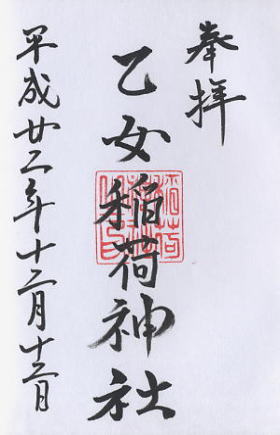 奉拝
乙女稲荷神社
平成廿二年十二月十二日